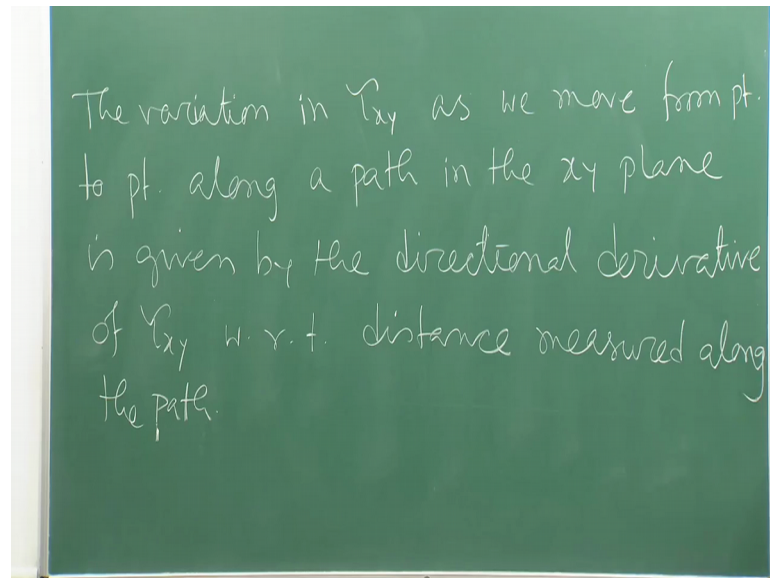 The variation in τxy as we move from pt.
to pt. along a path in the xy plane
is given by the directional derivative
of τxy w.r.t. distance measured along
the path.